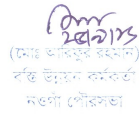 (মোঃ আরিফুর রহমান)
বস্তি উন্নয়ন কর্মকর্তা
নওগাঁ পৌরসভা